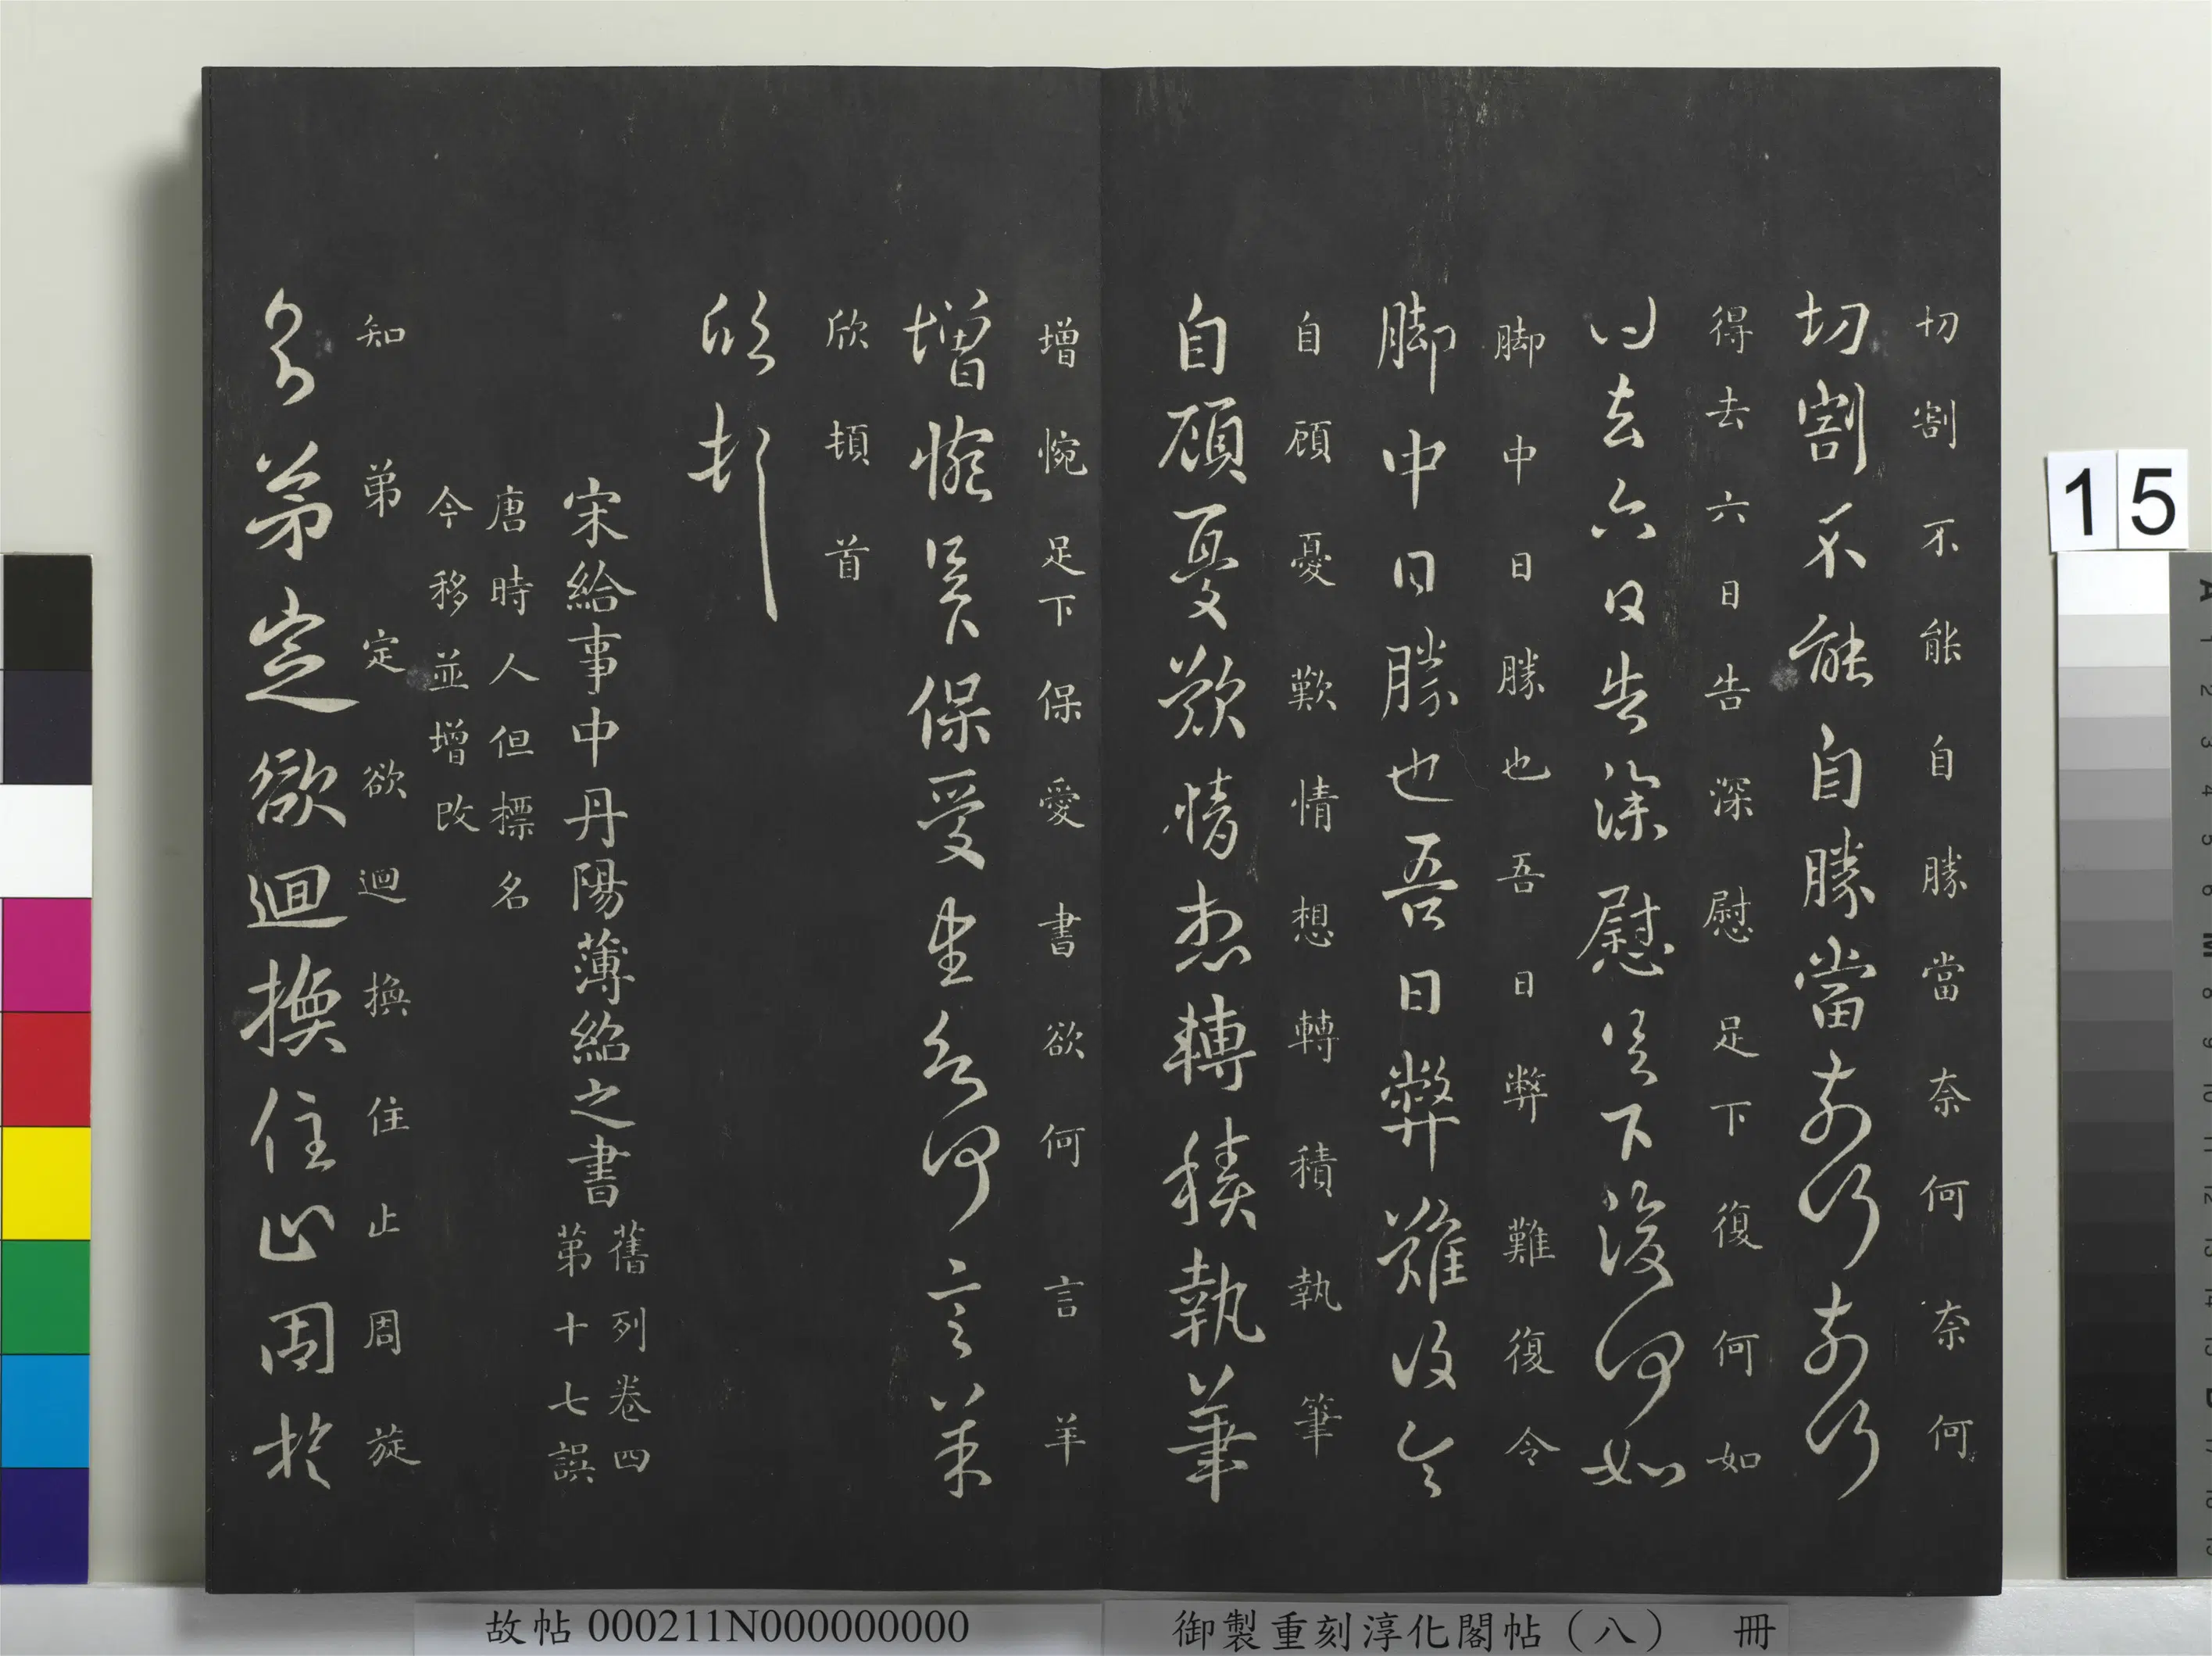 切割不能自勝當奈何奈何
切割不能自勝當奈何奈何
得去六日告深慰足下復何如
得去六日告深慰足下復何如
脚中日勝也吾日弊難復令
脚中日勝也吾日弊難復令
自顧憂歎情想轉積執筆
自顧憂歎情想轉積執筆
增惋足下保愛書欲何言羊
增惋足下保愛書欲何言羊
欣頓首
欣頓首
宋給事中丹陽薄紹之書
舊列卷四
第十七誤
唐時人但標名
今移並增改
知弟定欲迴換住止周旋
知弟定欲迴換住止周旋
15
故帖000211N000000000
御製重刻淳化閣帖（八） 冊